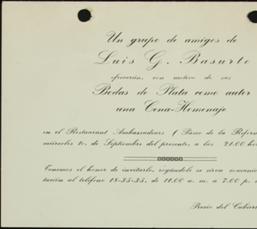 Un grupo de amigos de
Luis G. Basurto
ofrecerán, con motivo de sus
Bodas de Plata como autor
una Cena-Homenaje
en el Restaurant Ambassadeurs ( Paseo de la Reform
miércoles 1o. de Septiembre del presente, a las 21.00 hor
Tenemos el honor de invitarlo, rogándole se sirva
tación al teléfono 18-35-35, de 12.00 a. m. a 7.00 p.
Precio del Cubiert